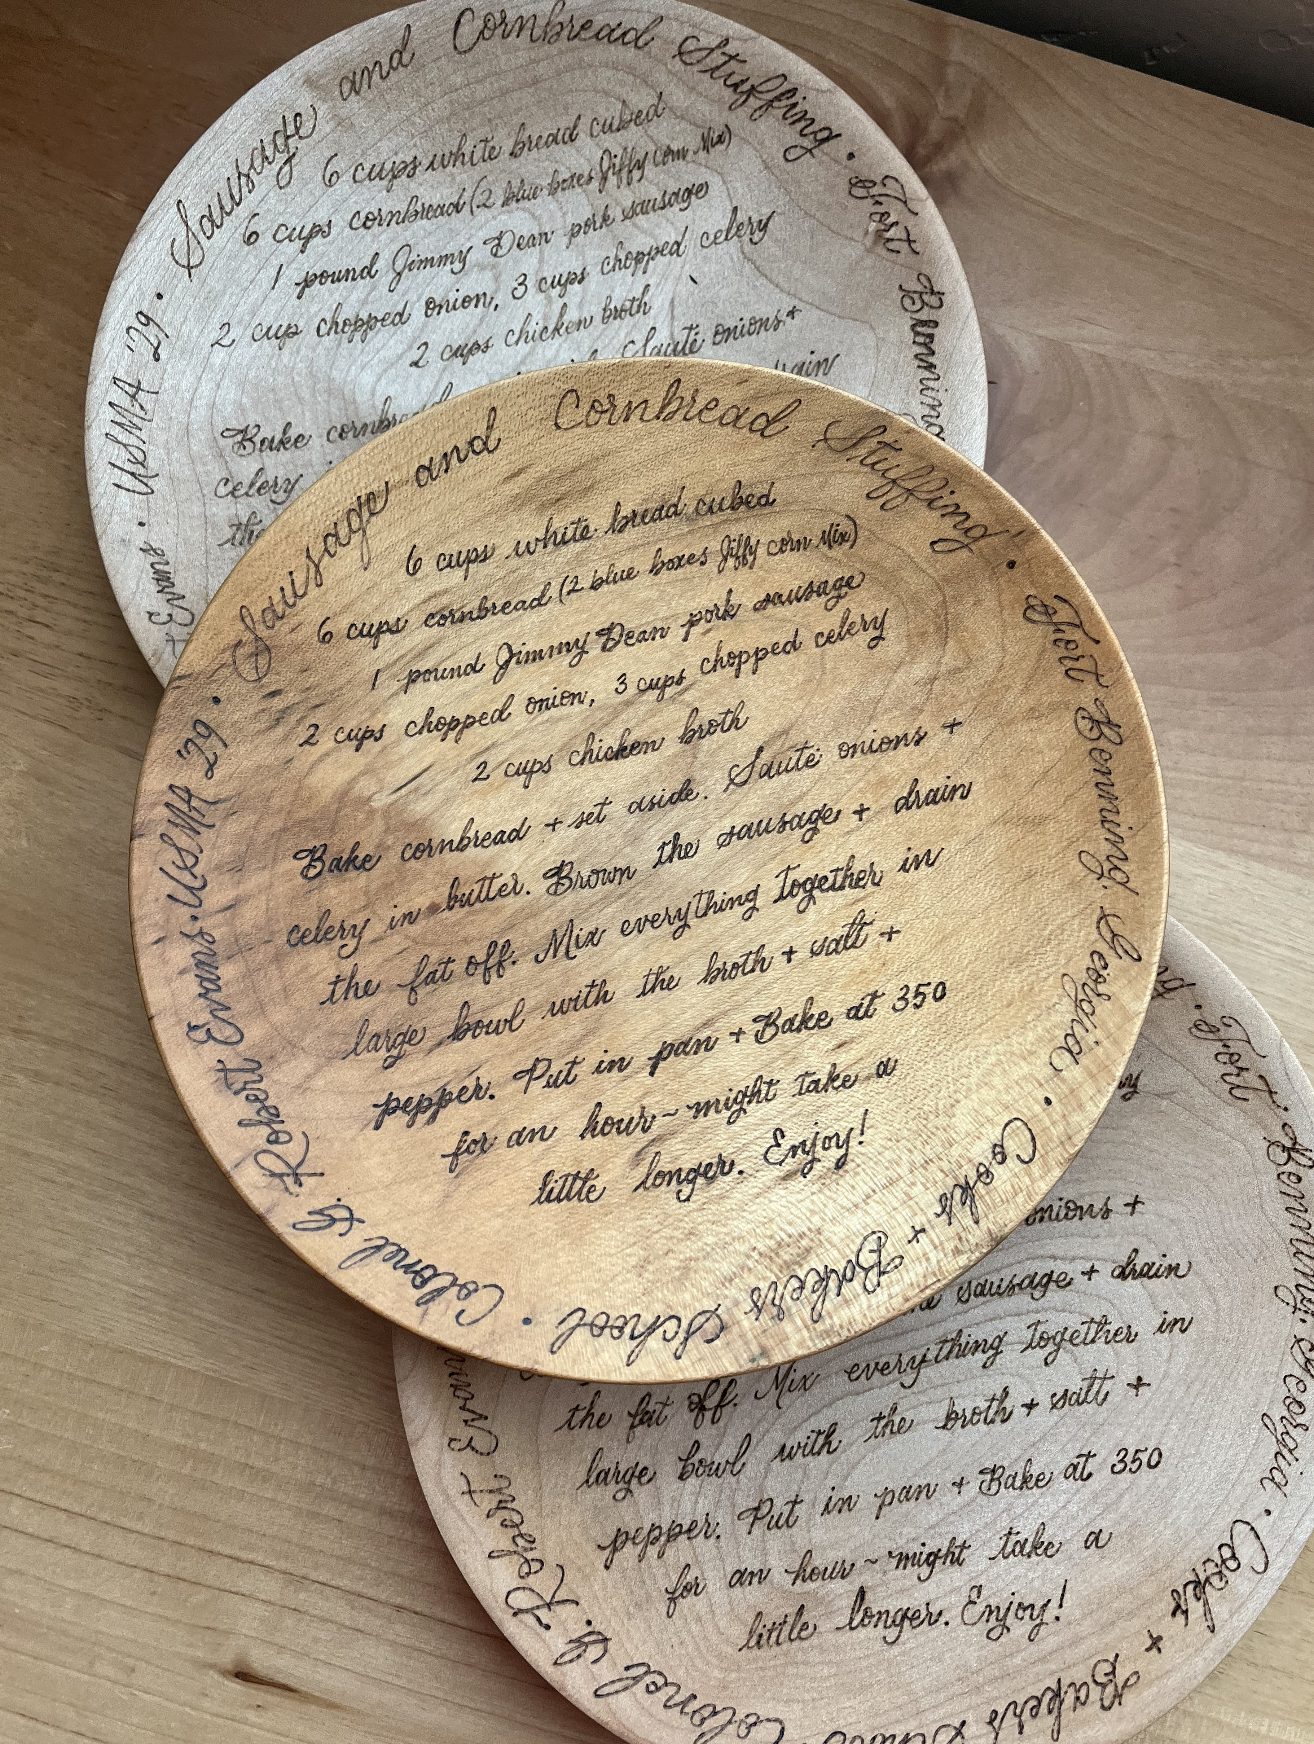 Sausage and Cornbread Stuffing. Fort Benning
6 cups white bread cubed
6 cups cornbread (2 blue boxes Jiffy corn Mix)
1 pound Jimmy Dean pork sausage
2 cup chopped onion, 3 cups chopped celery
2 cups chicken broth
Sauté onions +
Bake
celery
Evans. USMA '29.
Sausage and Cornbread Stuffing. Fort Benning, Georgia. Cooks + Bakers School. Colonel G. Robert Evans. USMA '29.
6 cups white bread cubed
6 cups cornbread (2 blue boxes Jiffy corn Mix)
1 pound Jimmy Dean pork sausage
2 cups chopped onion, 3 cups chopped celery
2 cups chicken broth
Bake cornbread + set aside. Sauté onions +
celery in butter. Brown the sausage + drain
the fat off. Mix everything together in
large bowl with the broth + salt +
pepper. Put in pan + Bake at 350
for an hour ~ might take a
little longer. Enjoy!
Fort Benning, Georgia. Cooks + Bakers
sausage + drain
the fat off. Mix everything together in
large bowl with the broth + salt +
pepper. Put in pan + Bake at 350
for an hour ~ might take a
little longer. Enjoy!
Colonel G. Robert